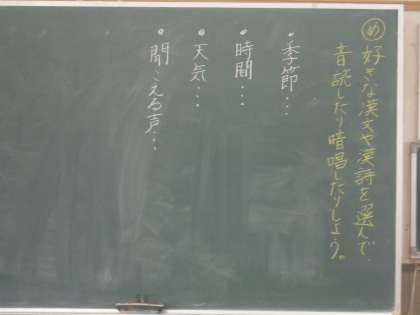 め 好きな漢文や漢詩を選んで、
音読したり暗唱したりしよう。
・季節…
・時間…
・天気…
・聞こえる声…